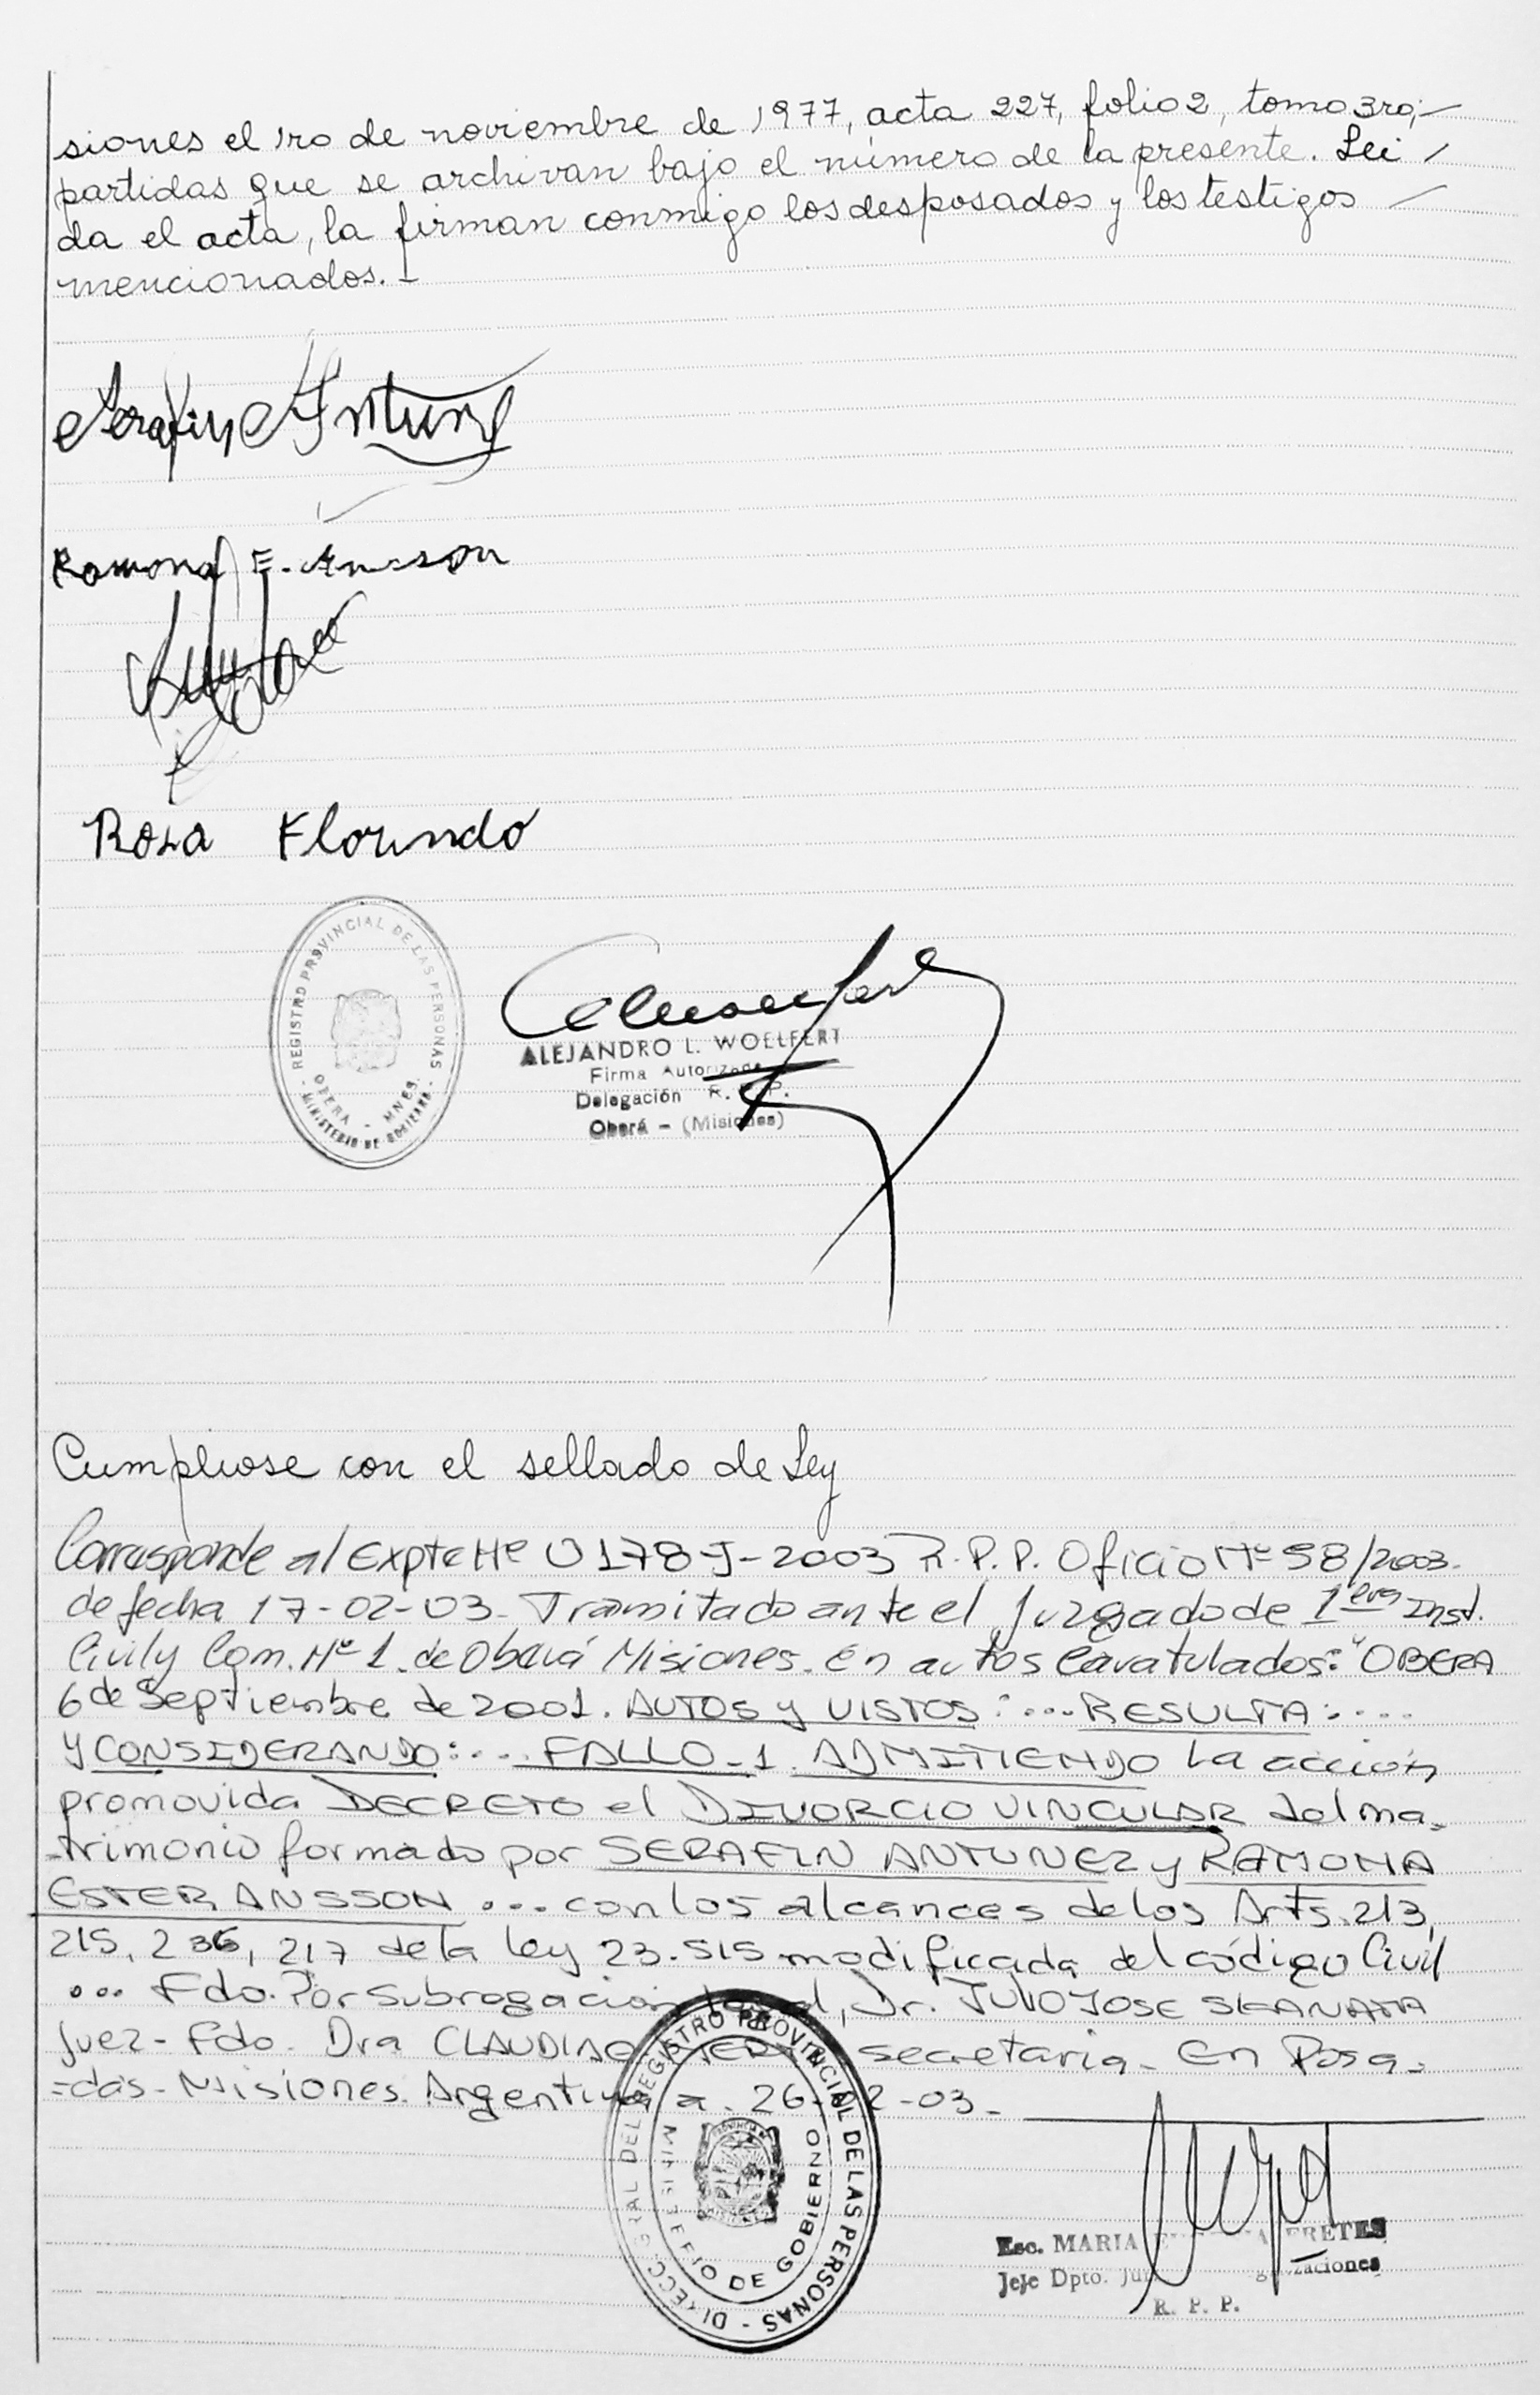 siones el 1ro de noviembre de 1977, acta 227, folio 2, tomo 3ro,-
partidas que se archivan bajo el número de la presente. Lei -
da el acta, la firman conmigo los desposados y los testigos -
mencionados. -
Serafin Antunez
Ramona E. Ansson
Rosa Florindo
- REGISTRO PROVINCIAL DE LAS PERSONAS -
OBERA - MNES.
MINISTERIO DE GOBIERNO
ALEJANDRO L. WOELFERT
Firma Autorizada
Delegación R. P. P.
Oberá - (Misiones)
Cumpliose con el sellado de Ley
Corresponde al Expte Nº 0178-J-2003 R.P.P. Oficio Nº 58/2003.
de fecha 17-02-03. Tramitado ante el Juzgado de 1era Inst.
Civil y Com. Nº 1. de Oberá Misiones. en autos Caratulados: "OBERA
6 de Septiembre de 2001. AUTOS y VISTOS: ... RESULTA: ....
y CONSIDERANDO: ... FALLO - 1. ADMITIENDO la acción
promovida DECRETO el DIVORCIO VINCULAR del ma-
-trimonio formado por SERAFIN ANTUNEZ y RAMONA
ESTER ANSSON ... con los alcances de los Arts. 213,
215, 236, 217 de la ley 23.515 modificada del código Civil
... Fdo. Por Subrogación legal, Dr. JULIO JOSE
Juez - Fdo. Dra CLAUDIA secretaria - En Posa-
=das - Misiones. Argentina a. 26-02-03.-
DIRECC. GRAL DEL REGISTRO PROVINCIAL DE LAS PERSONAS -
MINISTERIO DE GOBIERNO
Esc. MARIA FRETES
Jefe Dpto.
R. P. P.